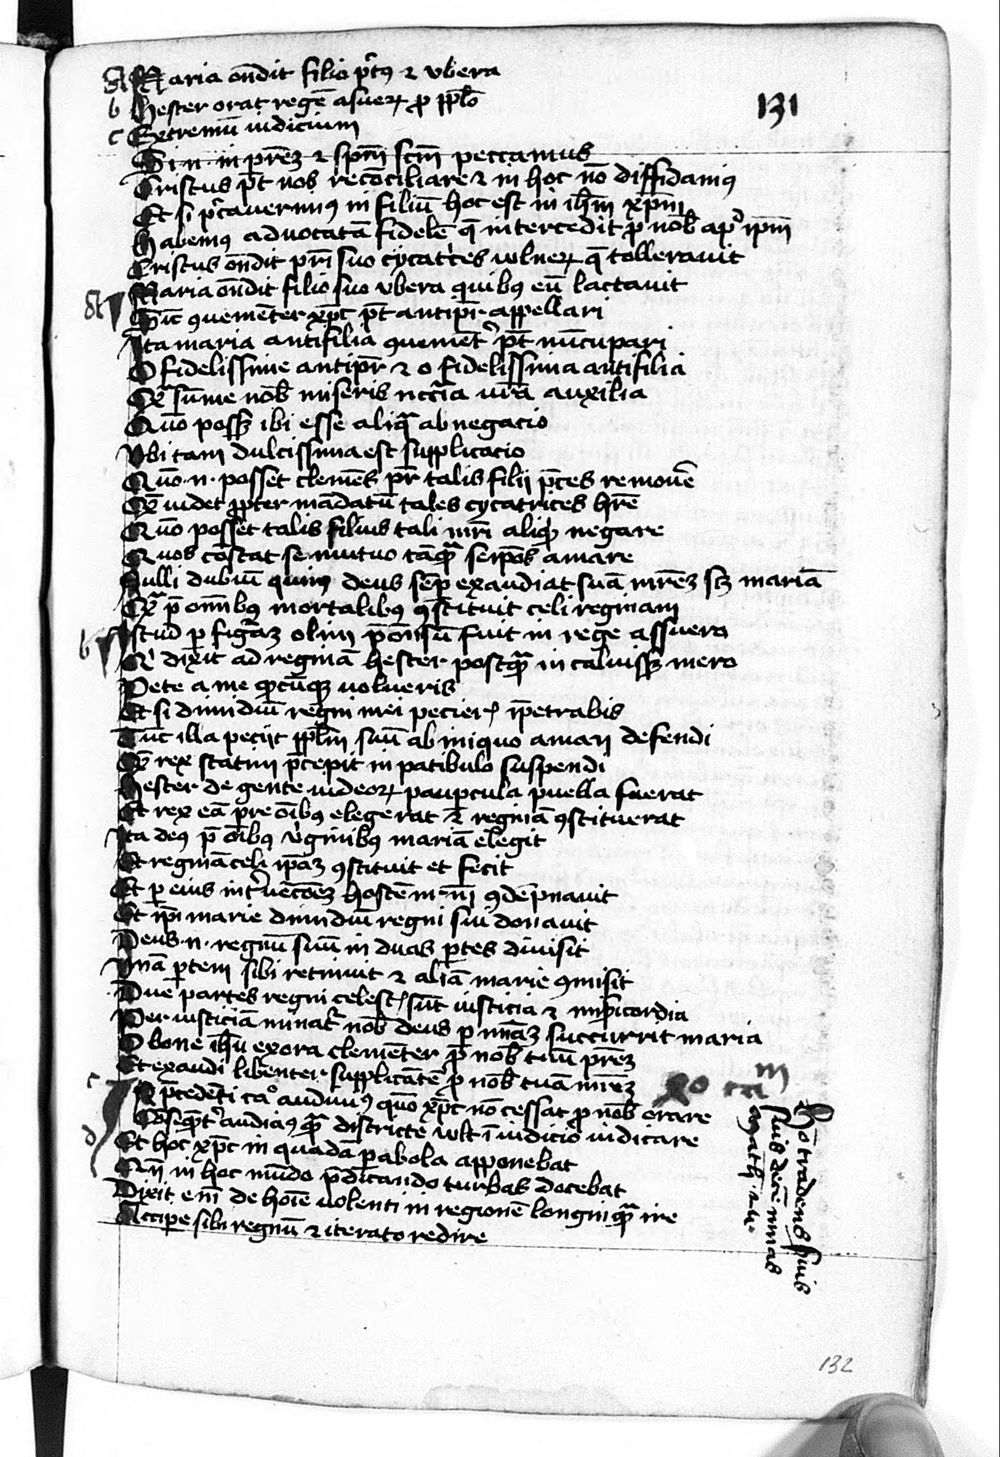 a Maria ondit filio pect9 ⁊ vbera
b Hester orat regē asueꝝ ꝓ pplo
131
c Extremū iudiciūm
Si n in prēz ⁊ spm scm peccamus
Cristus pt nos reconciliare ⁊ in hoc nō diffidamus
Et si pccaverim9 in filiū hoc est in ihm xpm
Habem9 advocatā fidelē q̄ intercedit ꝓ nob apd ipm
Cristus ondit pri suo cycatces vulneꝝ q̄ tolleravit
a Maria ondit filio suo vbera quibꝫ eū lactavit
Sic 9venienter xpc pt antipr appellari
Ita maria antifilia 9venient pt nūcupari
O fidelissime antipr ⁊ o fidelissima antifilia
Qr sume nob miseris nccia vra auxilia
Quō possꝫ ibi esse aliq̄ abnegacio
Vbi tam dulcissima est supplicacio
Quō n posset clemēs pr talis filij pces removē
Qr videt ꝓpter mādatū tales cycatrices hrē
Quō posset talis filius tali mri aliqd negare
Quos cōstat se mutuo tāq̄ seipos amare
Nulli dubiū quin deus semp exaudiat suā mrēz scꝫ mariā
Qr p omibꝫ mortalibꝫ 9stituit celi reginam
b Istud p figurāz olim pōnsū fuit in rege assuero
Qi dixit ad reginā hester postq̄ incaluissꝫ mero
Pete a me qdcūqꝫ volueris
Et si dimidiū regni mei pecieris ipetrabis
Tūc illa peciit pplm suū ab iniquo aman defendi
Que rex statim pcepit in patibulo suspendi
Hester de gente iudeoꝝ paupcula puella fuerat
Et rex eā pre oibꝫ elegerat ⁊ reginā 9stituerat
Ita de9 p oibꝫ virginibꝫ mariam elegit
Et reginā celi ipāz 9stituit et fecit
Et per eius intvencoēz hostē nrm 9dēpnavit
Et ipi marie dimidiū regni sui donavit
Deus n regnū suū in duas ptes divisit
Vnā ptem sibi retinuit ⁊ aliā marie 9misit
Due partes regni celest sūt iusticia ⁊ misericordia
Per iusticiā minat nob deus p miam succurrit maria
O bone ihu exora clemēter p nob tuū prēz
Et exaudi libenter supplicātē p nob tuā mrēz
c In pcedēti cao audivim9 quō xpc nō cessat ꝓ nob orare
Cōseqnt audiam9 q̄ districte vlt ī iudicio iudicare
d Et hoc xpc in quadā parabola apponebat
Qn in hoc mūdo pdicando turbas docebat
Dixit enī de hoīe volenti in regionē longinq̄ ire
Accipe sibi regnū ⁊ iterato redire
Hō tradens suis
suis decē mnas
132